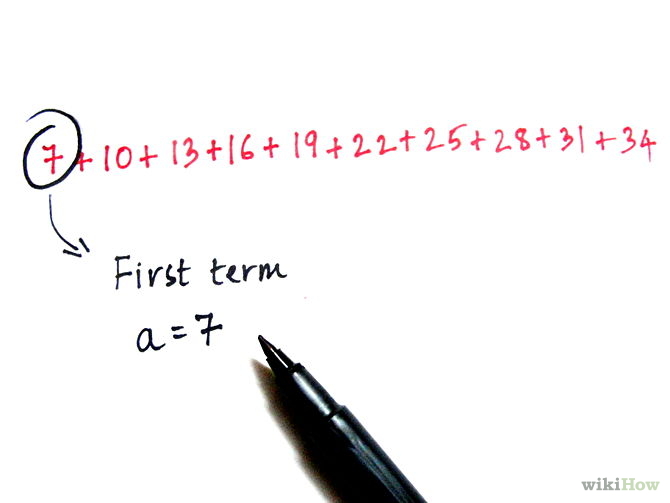 7+10+13+16+19+22+25+28+31+34
First term
a=7
wikiHow